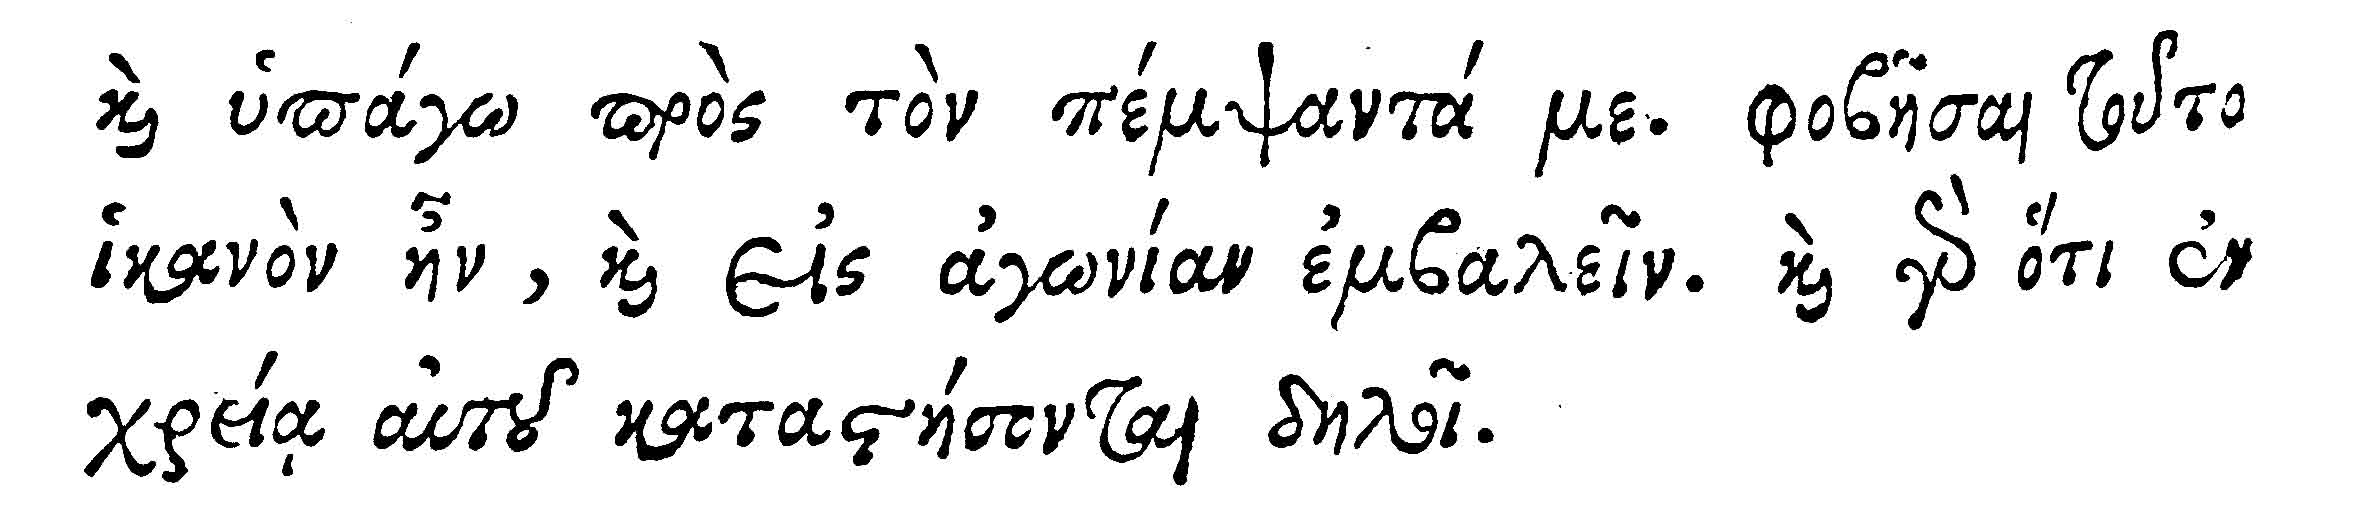 καὶ ὑπάγω πρὸς τὸν πέμψαντά με. φοβῆσαι τοῦτο
ἱκανὸν ἦν, καὶ εἰς ἀγωνίαν ἐμβαλεῖν. καὶ γὰρ ὅτι ἐν
χρείᾳ αὐτοῦ καταστήσονται δηλοῖ.